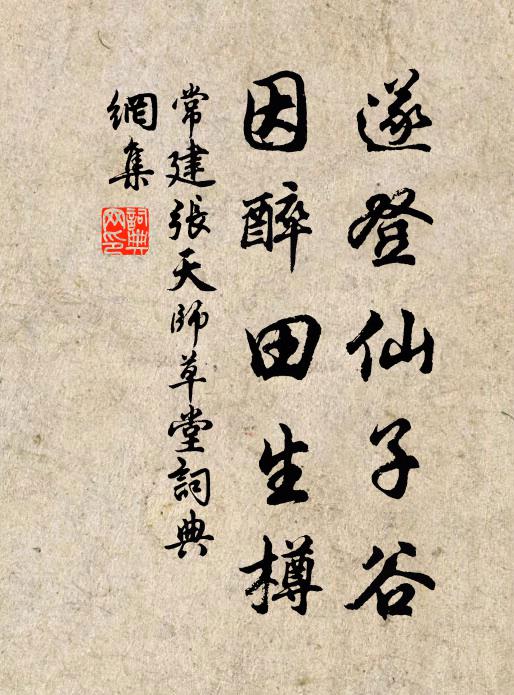 遂登仙子谷
因醉田生樽
常建張天師草堂詞典
網集
詞典
网印